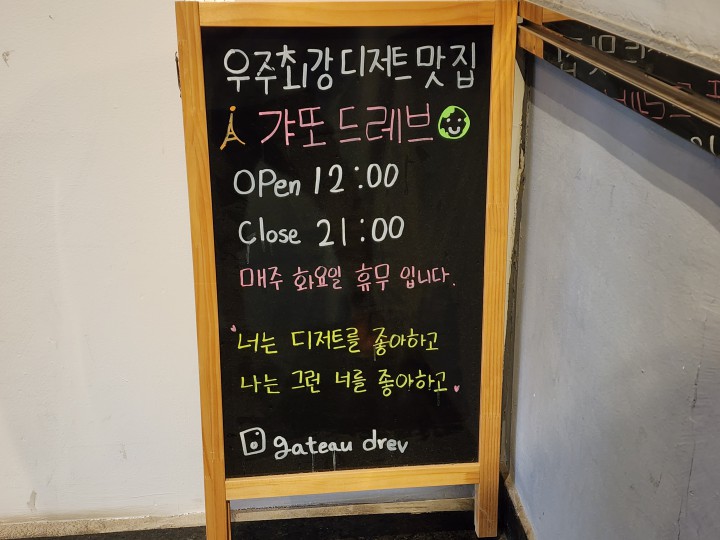 우주최강 디저트 맛집
갸또 드레브
OPen 12:00
Close 21:00
매주 화요일 휴무 입니다.
너는 디저트를 좋아하고
나는 그런 너를 좋아하고
gateau drev